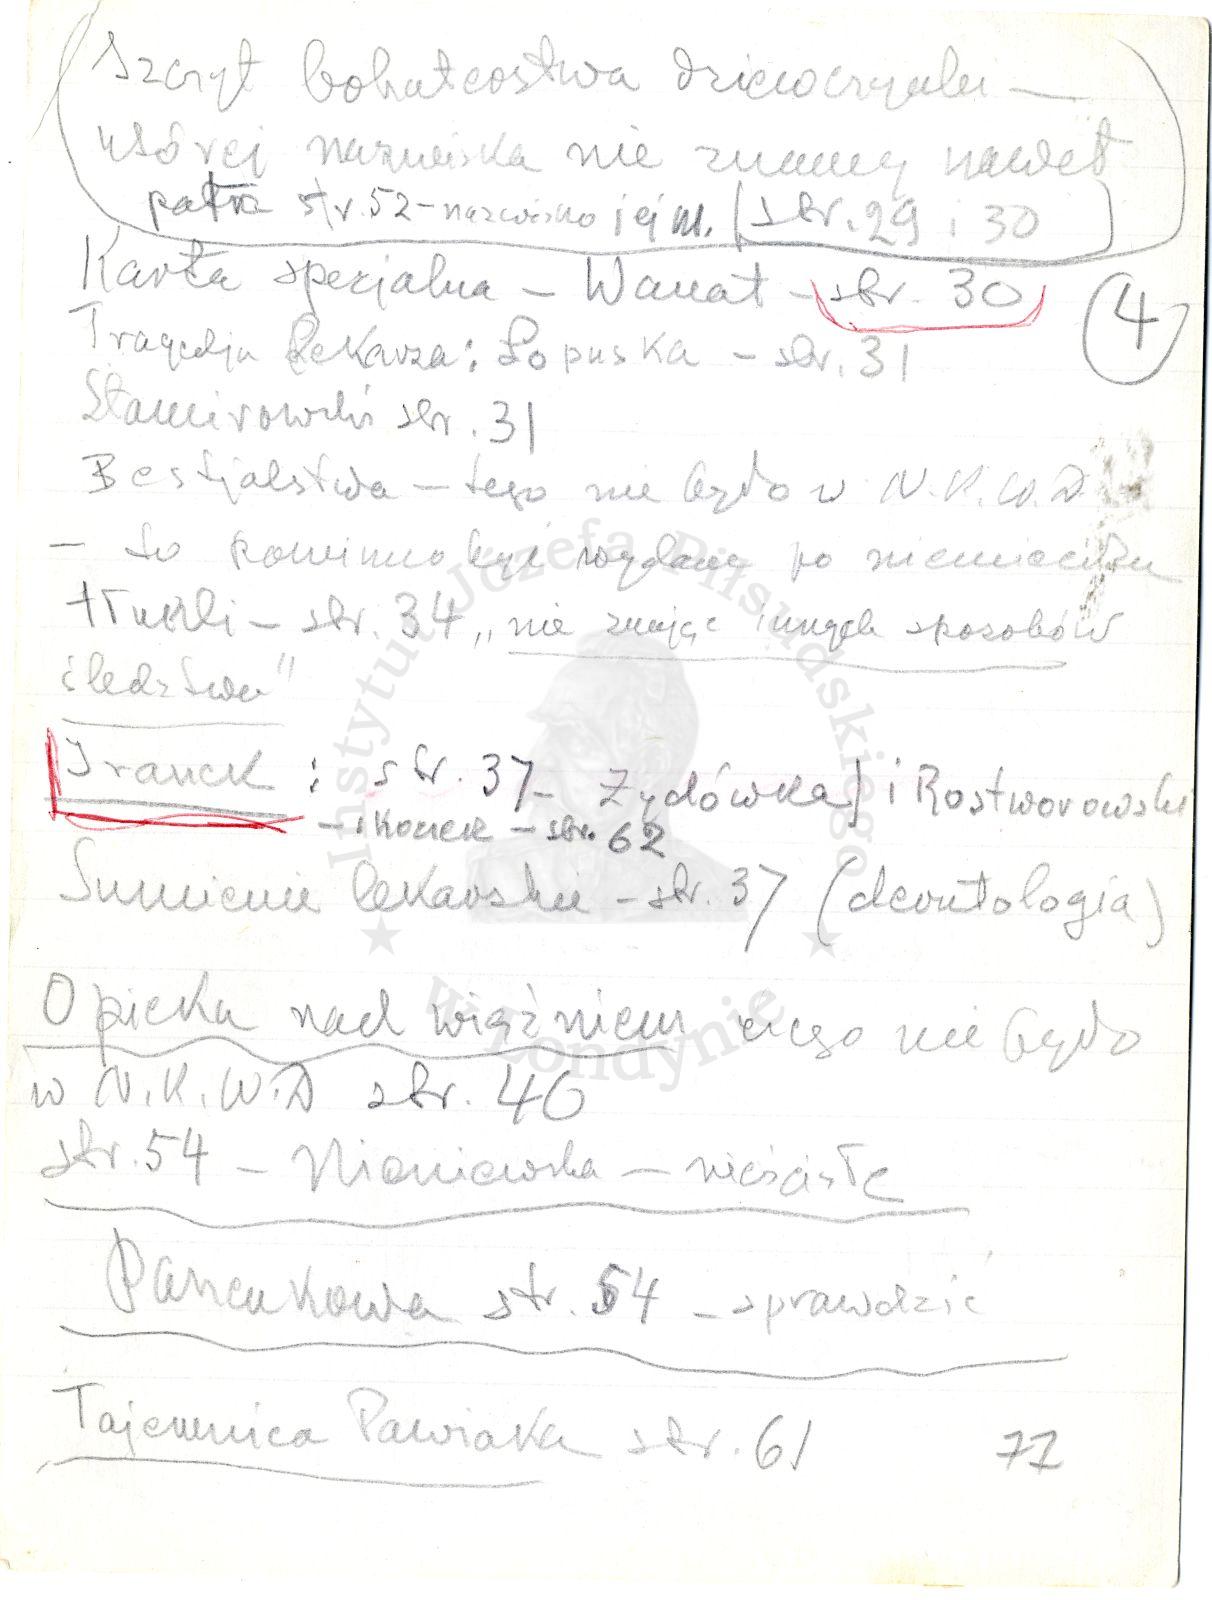 Szczyt bohaterstwa dziewczynki —
której nazwiska nie znamy nawet
patrz str. 52 - nazwisko jej m. (str. 29 i 30)
Karta specjalna — Wanat — str. 30
4
Tragedja Lekarza: Łopuska — str. 31
Stamirowski str. 31
Bestjalstwa — tego nie było w N.K.W.D.
— to powinno być wydane po niemiecku
tłukli — str. 34 „nie znając innych sposobów
śledztwa"
Iranek: str. 37 — Żydówka] i Rostworowski
— i Kocick — str. 62
Sumienie lekarskie — str. 37 (deontologia)
Opieka nad więźniem czego nie było
w N.K.W.D str. 46
str. 54 — — nieścisłe
Panenkowa str. 54 — sprawdzić
Tajemnica Pawiaka str. 61
77
Instytut Józefa Piłsudskiego
w Londynie